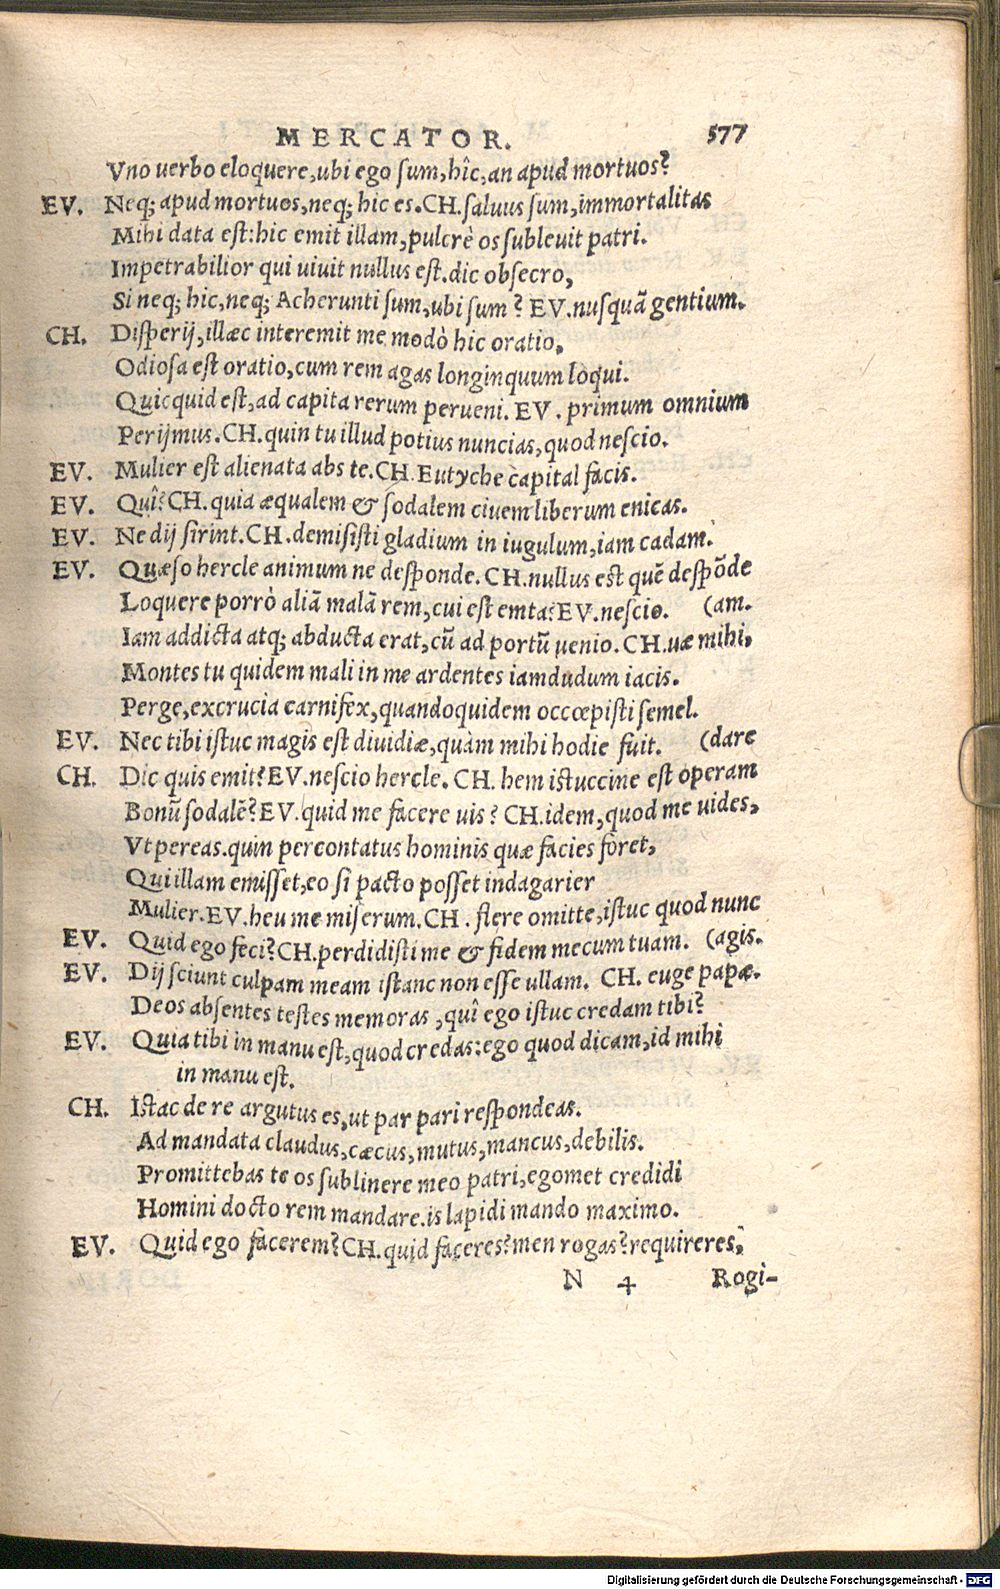 MERCATOR. 577
Vno uerbo eloquere, ubi ego sum, hîc, an apud mortuos?
EV. Neq; apud mortuos, neq; hic es. CH. saluus sum, immortalitas
Mihi data est: hic emit illam, pulcrè os subleuit patri.
Impetrabilior qui uiuit nullus est. dic obsecro,
Si neq; hic, neq; Acherunti sum, ubi sum? EV. nusquã gentium.
CH. Disperij, illæc interemit me modò hic oratio,
Odiosa est oratio, cum rem agas longinquum lòqui.
Quicquid est, ad capita rerum perueni. EV. primum omnium
Perijmus. CH. quin tu illud potius nuncias, quod nescio.
EV. Mulier est alienata abs te. CH. Eutyche capital facis.
EV. Quî? CH. quia æqualem & sodalem ciuem liberum enicas.
EV. Ne dij sirint. CH. demisisti gladium in iugulum, iam cadam.
EV. Quæso hercle animum ne desponde. CH. nullus est quẽ despõde
Loquere porrò aliã malã rem, cui est emta? EV. nescio. (am.
Iam addicta atq; abducta erat, cũ ad portũ uenio. CH. uæ mihi,
Montes tu quidem mali in me ardentes iamdudum iacis.
Perge, excrucia carnifex, quandoquidem occœpisti semel.
EV. Nec tibi istuc magis est diuidiæ, quàm mihi hodie fuit. (dare
CH. Dic quis emit? EV. nescio hercle. CH. hem istuccine est operam
Bonũ sodalẽ? EV. quid me facere uis? CH. idem, quod me uides,
Vt pereas. quin percontatus hominis quæ facies foret,
Qui illam emisset, eo si pacto posset indagarier
Mulier. EV. heu me miserum. CH. flere omitte, istuc quod nunc
EV. Quid ego feci? CH. perdidisti me & fidem mecum tuam. (agis.
EV. Dij sciunt culpam meam istanc non esse ullam. CH. euge papæ.
Deos absentes testes memoras, quî ego istuc credam tibi?
EV. Quia tibi in manu est, quod credas: ego quod dicam, id mihi
in manu est.
CH. Istac de re argutus es, ut par pari respondeas.
Ad mandata claudus, cæcus, mutus, mancus, debilis.
Promittebas te os sublinere meo patri, egomet credidi
Homini docto rem mandare. is lapidi mando maximo.
EV. Quid ego facerem? CH. quid faceres? men rogas? requireres,
N 4 Rogi-
Digitalisierung gefördert durch die Deutsche Forschungsgemeinschaft - DFG